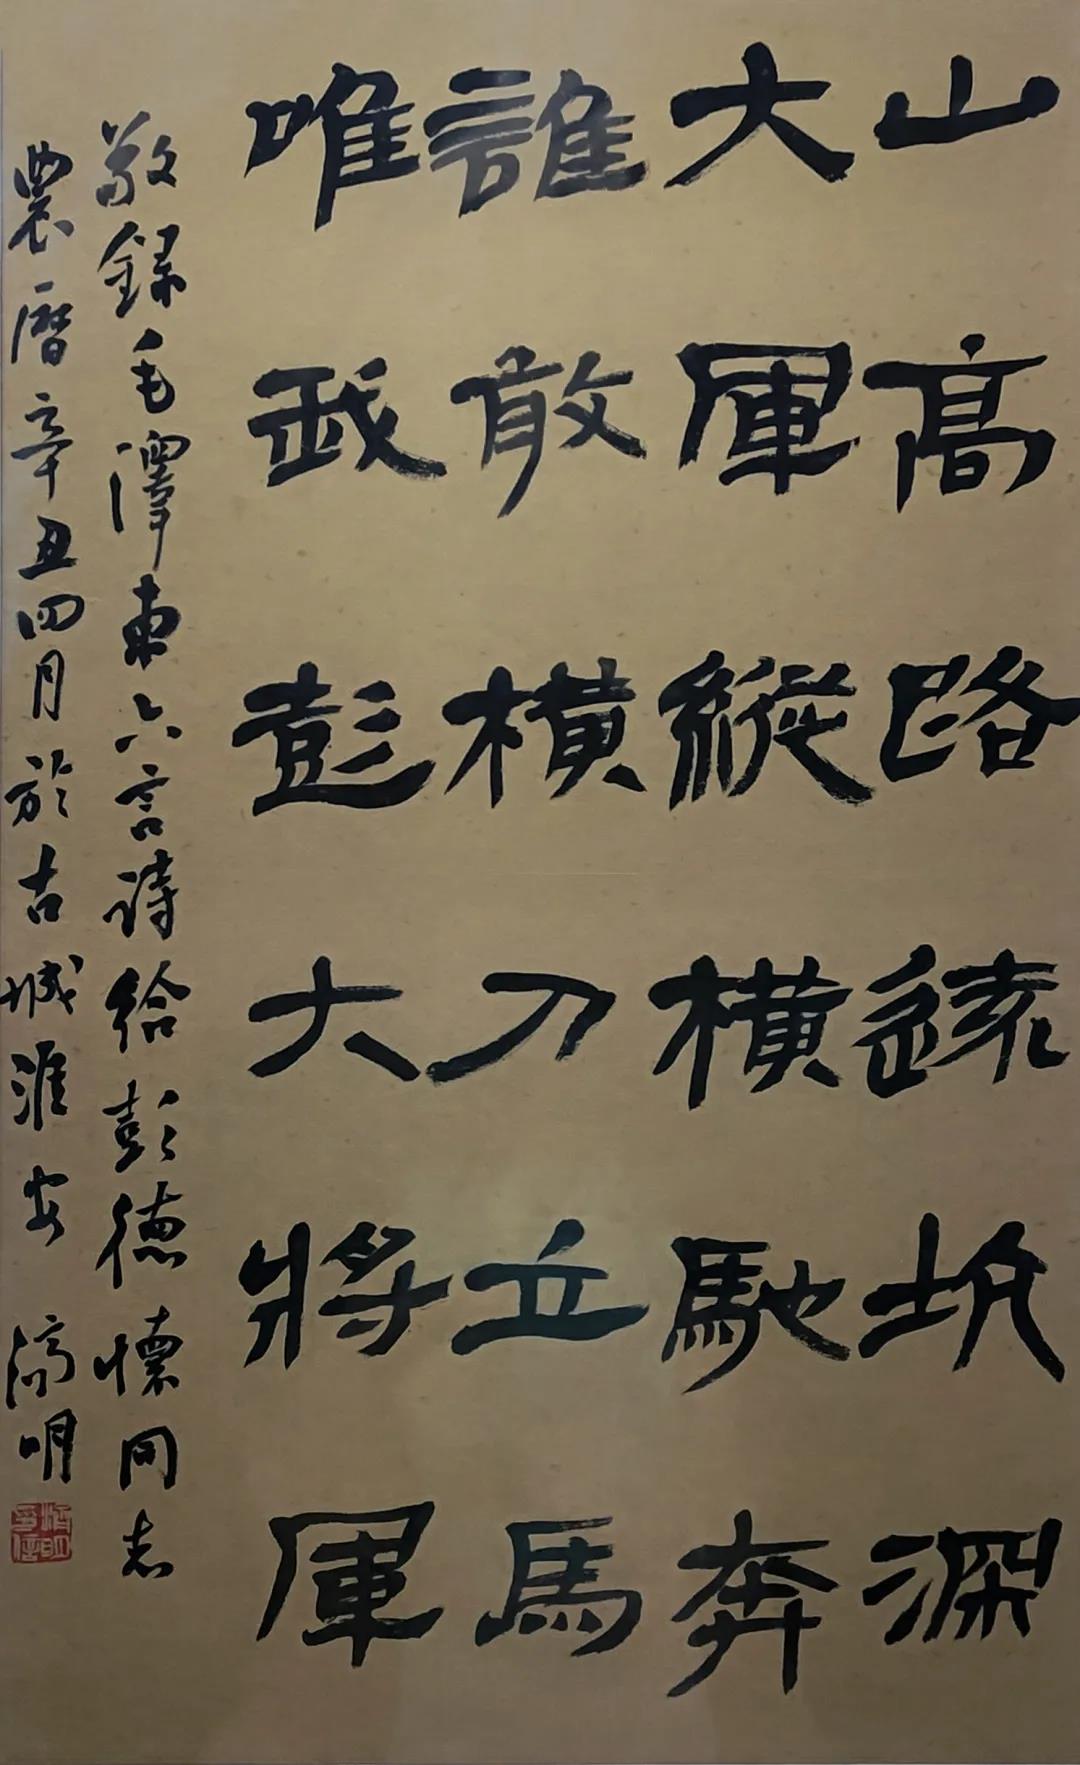 山高路遠坑深
大軍縱橫馳奔
誰敢橫刀立馬
唯我彭大將軍
敬錄毛澤東六言詩給彭德懷同志
農曆辛丑四月於古城淮安 濤明